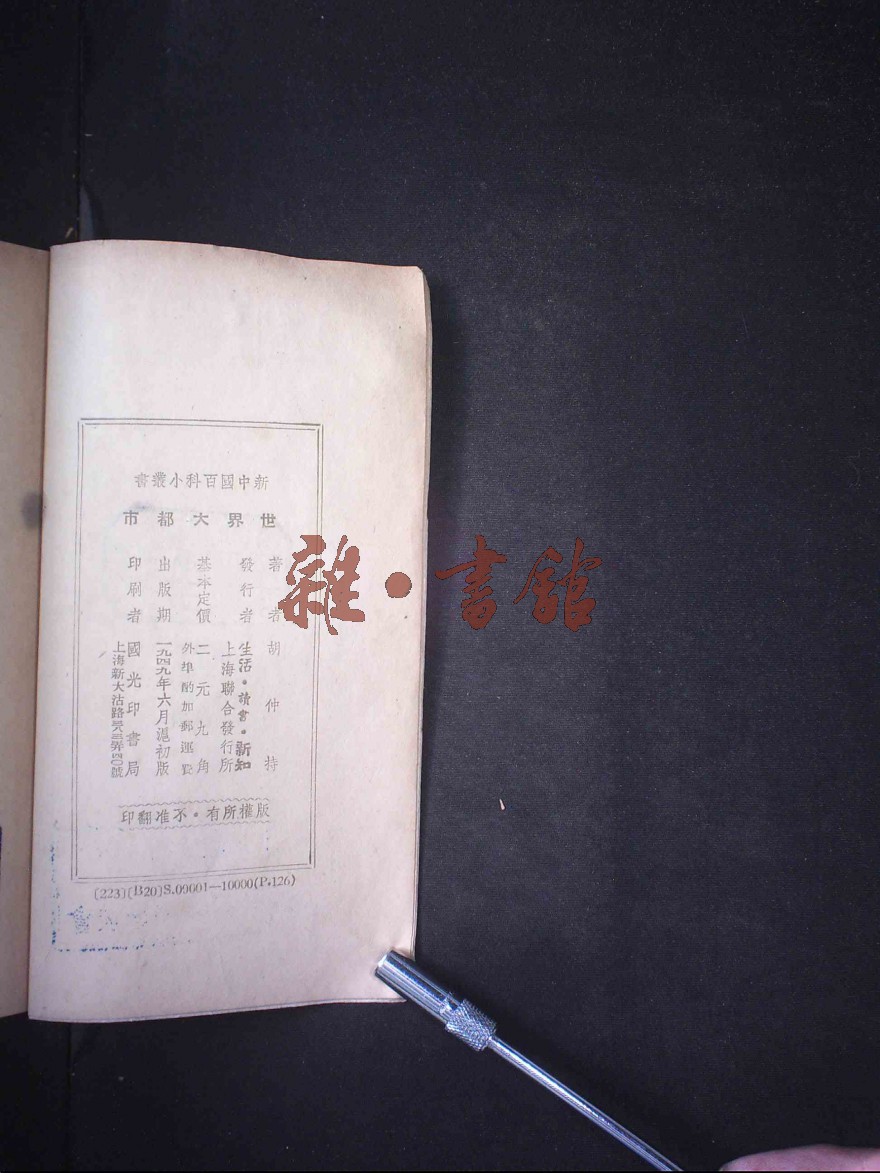 新中國百科小叢書
世界大都市
著者 胡仲持
發行者 生活·讀書·新知
上海聯合發行所
基本定價 二元九角
外埠酌加郵運費
出版期 一九四九年六月滬初版
印刷者 國光印書局
上海新大沽路
版權所有·不准翻印
(223)(B20)S.09001—10000(P.126)
雜·書館